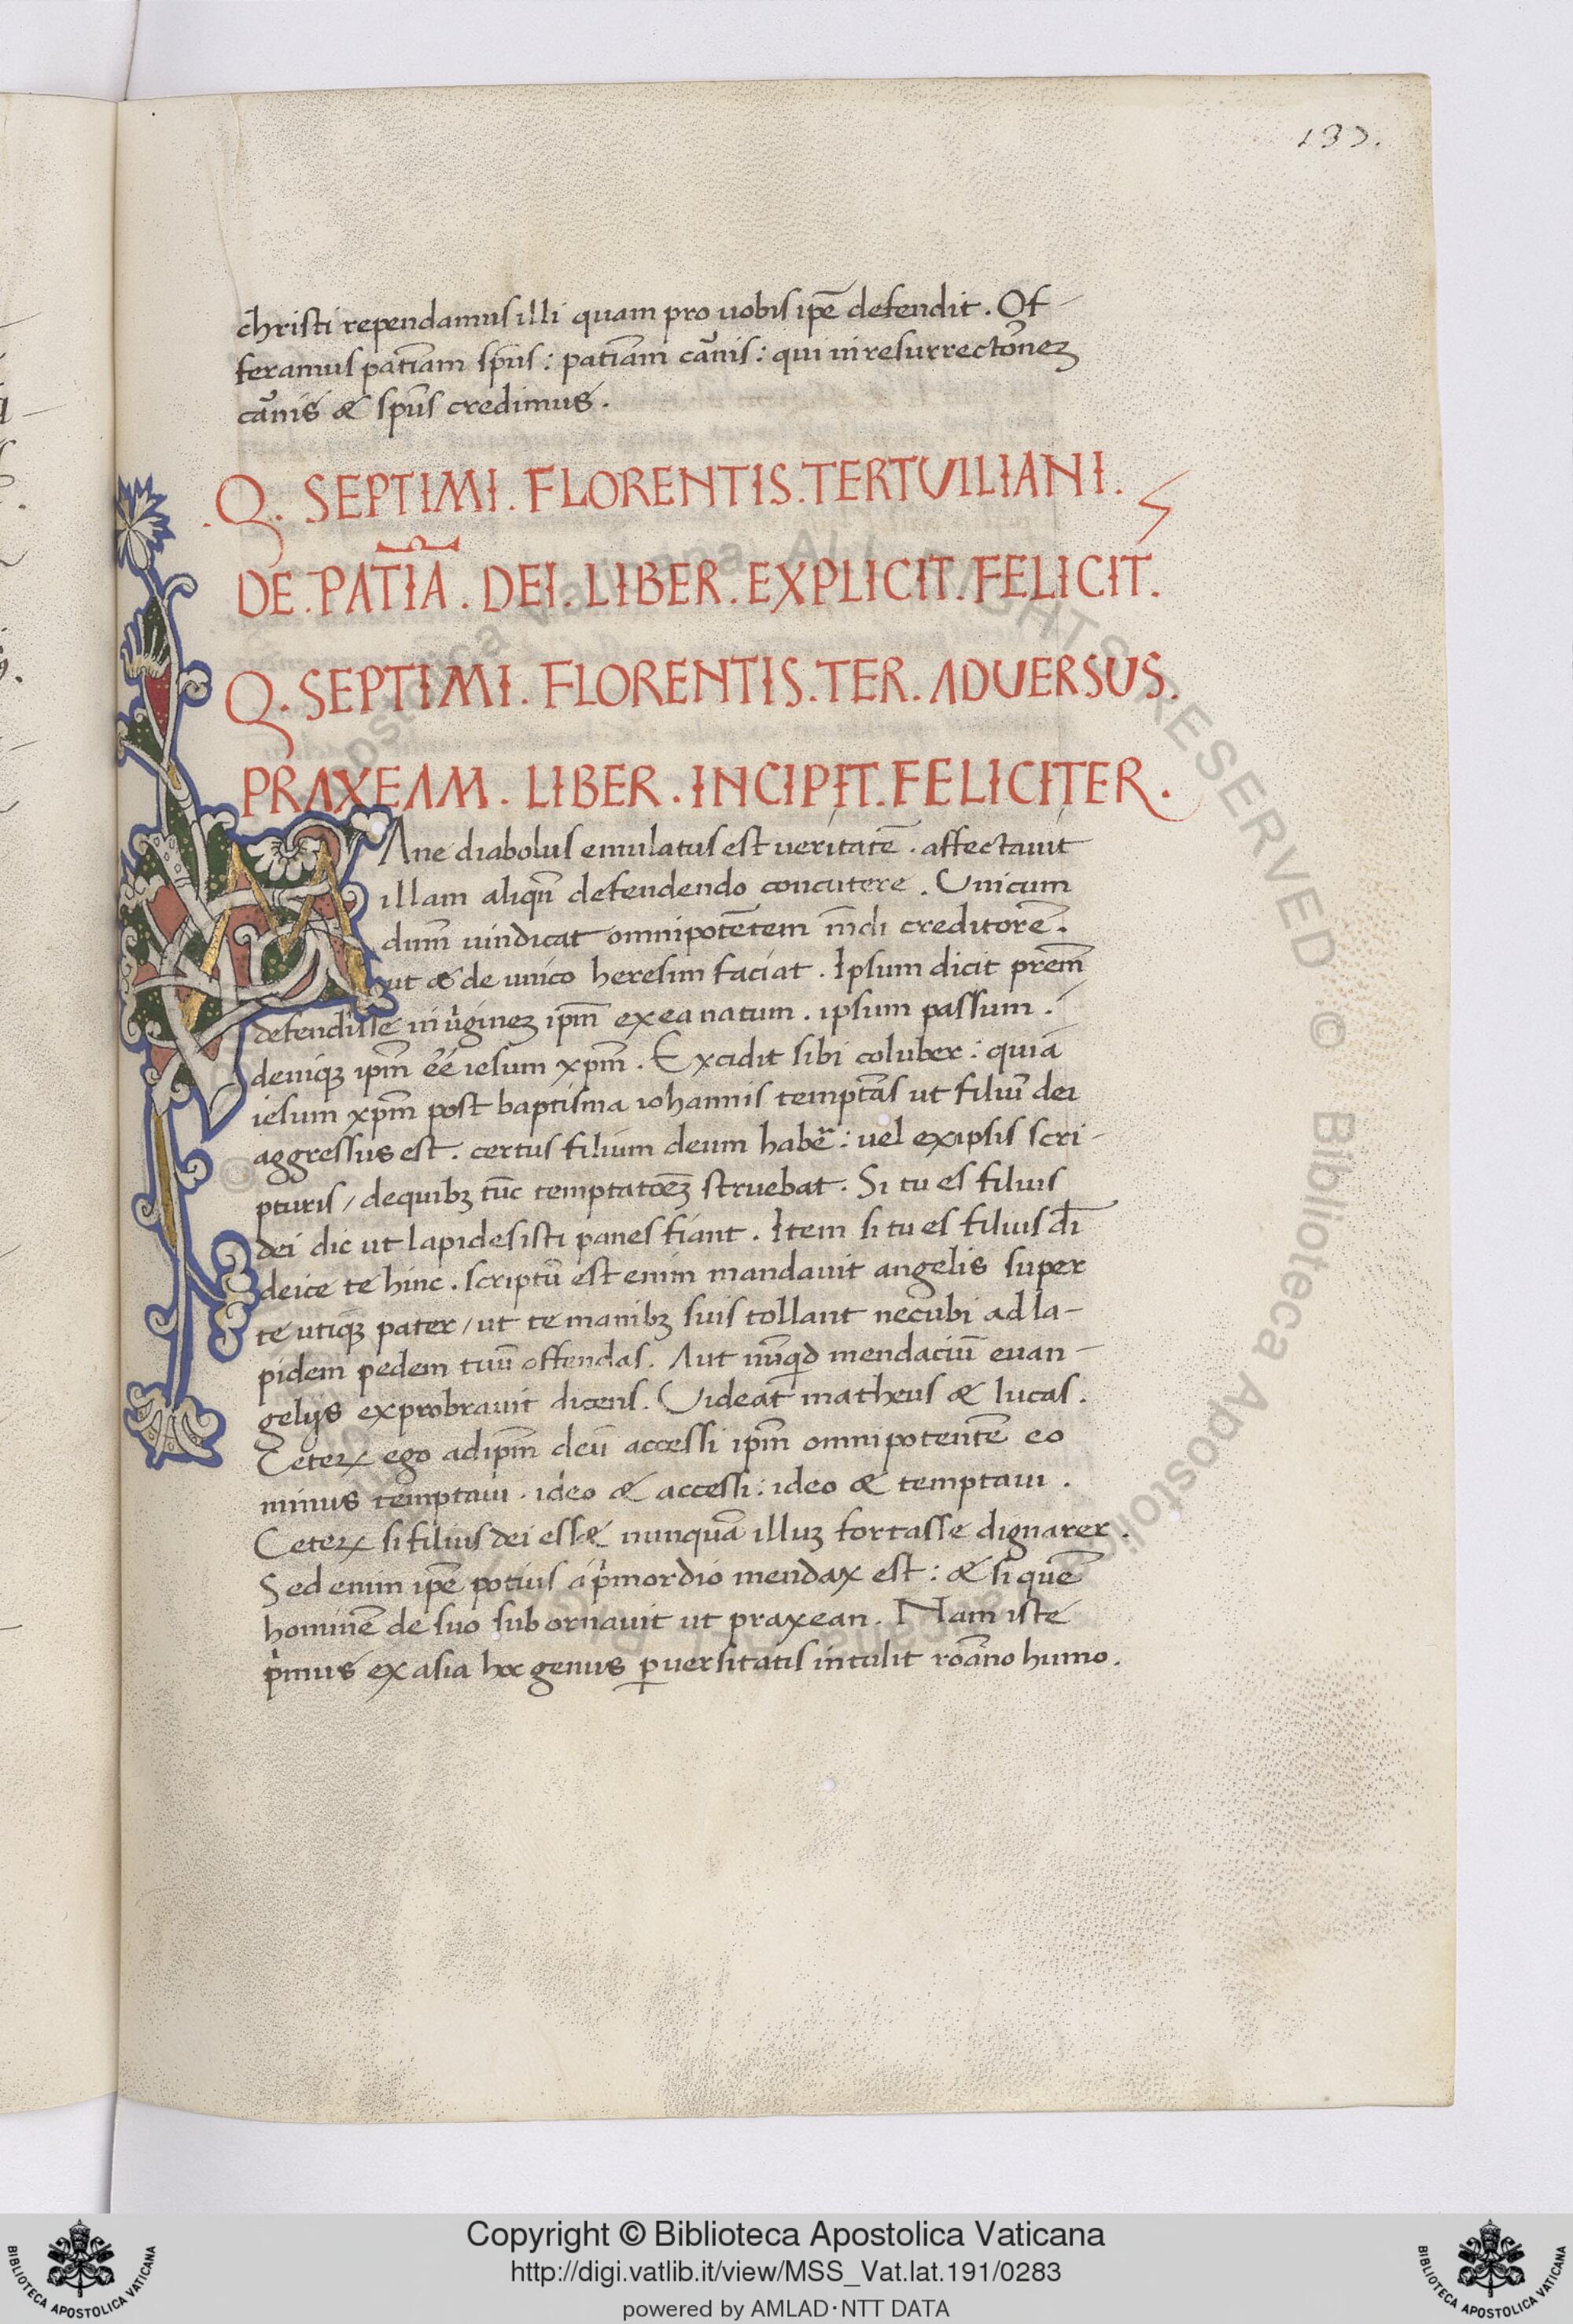 137.
christi rependamus illi quam pro uobis ip̄e defendit. Of-
feramus patiam sp̄us: patiam carnis: qui in resurrectōneʒ
carnis & sp̄us credimus.
.Q. SEPTIMI. FLORENTIS. TERTUILIANI.
DE. PATIA̅. DEI. LIBER. EXPLICIT. FELICIT.
Q. SEPTIMI. FLORENTIS. TER. ADUERSUS.
PRAXEAM. LIBER. INCIPIT. FELICITER.
Ane diabolus emulatus est ueritatē. affectauit
illam aliqn̄ defendendo concutere. Unicum
dum̄ uindicat omnipotētem mn̄di creditorē.
ut & de unico heresim faciat. Ipsum dicit prem̄
defendisse in uigineʒ ipm̄ ex ea natum. ipsum passum.
deniqʒ ipm̄ ēē iesum xpm̄. Excidit sibi coluber: quia
iesum xpm̄ post baptisma iohannis temptās ut filiū dei
aggressus est. certus filium deum habēr: uel ex ipsis scri-
pturis / de quibʒ tūc temptatōeʒ struebat. Si tu es filius
dei dic ut lapides isti panes fiant. Item si tu es filius dī
deice te hinc. scriptū est enim mandauit angelis super
te utiqʒ pater / ut te manibʒ suis tollant necubi ad la-
pidem pedem tuū offendas. Aut nūqd mendaciū euan-
gelijs exprobrauit dicens. Uideat matheus & lucas.
Ceteꝝ ego ad ipm̄ deū accessi ipm̄ omnipotentē eo
minus temptaui. ideo & accessi: ideo & temptaui.
Ceteꝝ si filius dei ess& nunquā illuʒ fortasse dignarer.
Sed enim ip̄e potius a pimordio mendax est: & si quē
hominē de suo subornauit ut praxean. Nam iste
pimus ex asia hoc genus ꝑuersitatis intulit roāno humo.
Copyright © Biblioteca Apostolica Vaticana
http://digi.vatlib.it/view/MSS_Vat.lat.191/0283
powered by AMLAD·NTT DATA
BIBLIOTECA APOSTOLICA VATICANA
BIBLIOTECA APOSTOLICA VATICANA